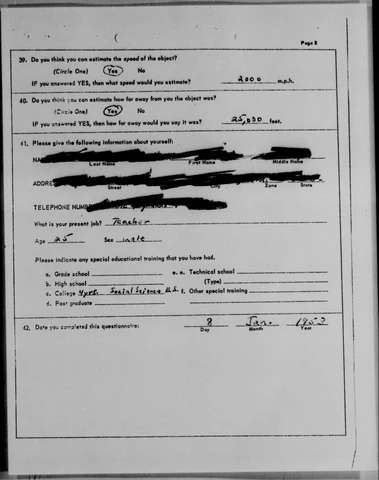 Page 5
39. Do you think you can estimate the speed of the object?
(Circle One) Yes No
IF you answered YES, then what speed would you estimate? 2000 m.p.h.
40. Do you think you can estimate how far away from you the object was?
(Circle One) Yes No
IF you answered YES, then how far away would you say it was? 25,000 feet.
41. Please give the following information about yourself:
NA
Last Name First Name Middle Name
ADDRE
Street City Zone State
TELEPHONE NUM
What is your present job? Teacher
Age 25 Sex male
Please indicate any special educational training that you have had.
a. Grade school e. Technical school
b. High school (Type)
c. College 4 yrs. Social Science B.S. f. Other special training
d. Post graduate
42. Date you completed this questionnaire: 8 Jan. 1953
Day Month Year